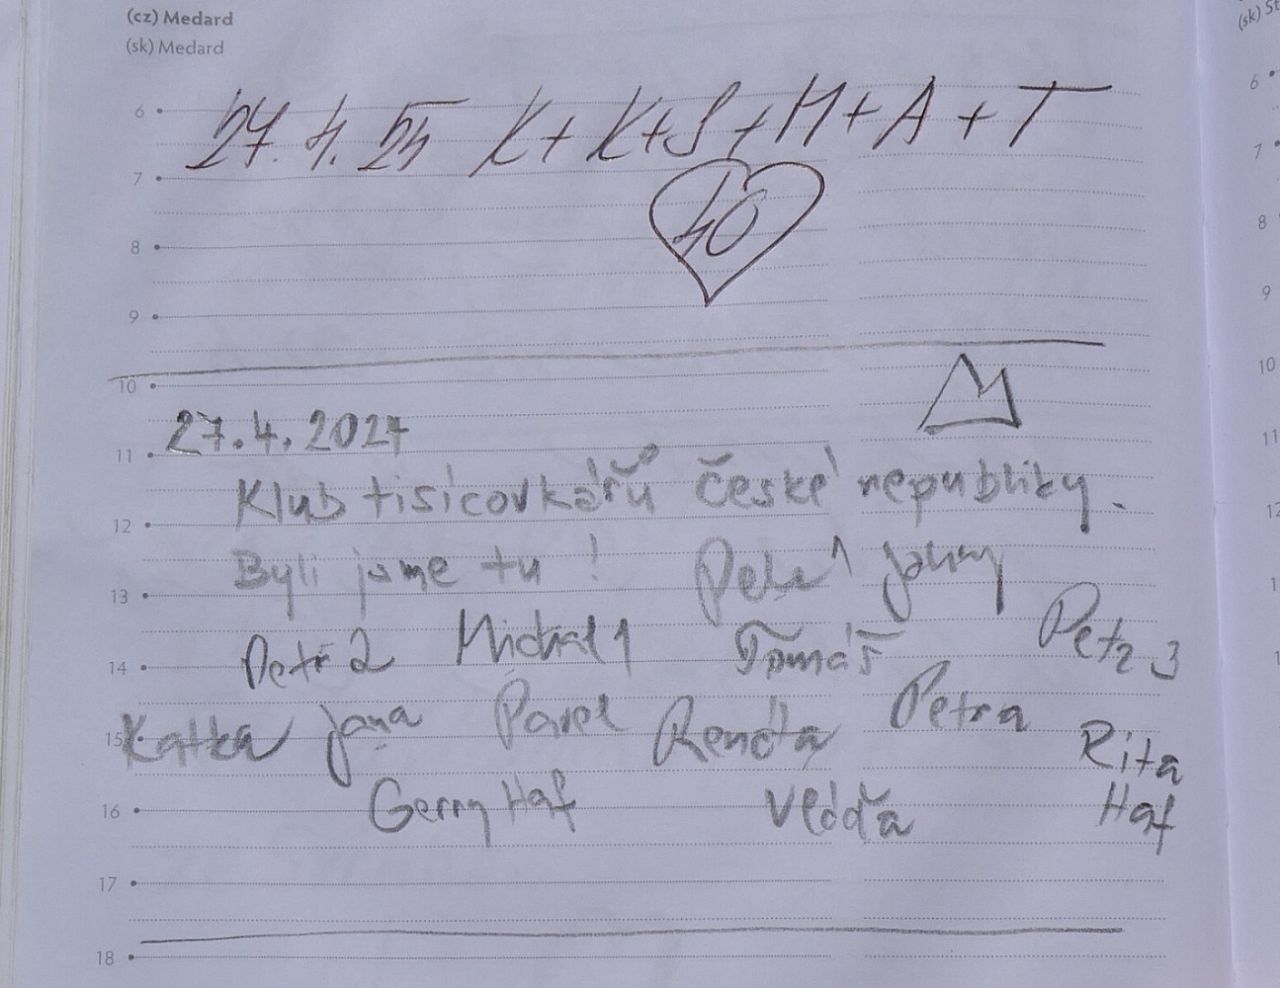 (cz) Medard
(sk) Medard
6
27. 4. 24 K + K + S + M + A + T
7
40
8
9
10
27.4.2024
11
Klub tisícovkářů České republiky.
12
Byli jsme tu!
13
Petr 1
Petr 2 Michal 1 Tomáš Petr 3
14
Katka Jana Pavel Renata Petra Rita
15
16
Gerry Haf Vláďa Haf
17
18
6
7
8
9
10
11